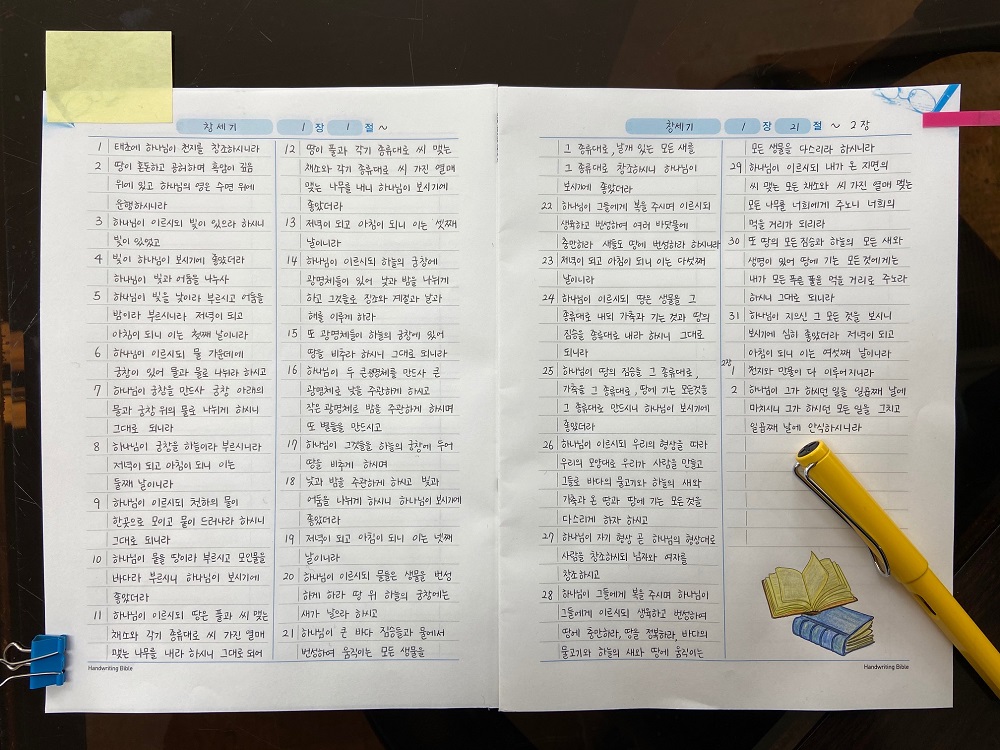 창세기 1 장 1 절 ~
1 태초에 하나님이 천지를 창조하시니라
2 땅이 혼돈하고 공허하며 흑암이 깊음
위에 있고 하나님의 영은 수면 위에
운행하시니라
3 하나님이 이르시되 빛이 있으라 하시니
빛이 있었고
4 빛이 하나님이 보시기에 좋았더라
하나님이 빛과 어둠을 나누사
5 하나님이 빛을 낮이라 부르시고 어둠을
밤이라 부르시니라 저녁이 되고
아침이 되니 이는 첫째 날이니라
6 하나님이 이르시되 물 가운데에
궁창이 있어 물과 물로 나뉘라 하시고
7 하나님이 궁창을 만드사 궁창 아래의
물과 궁창 위의 물로 나뉘게 하시니
그대로 되니라
8 하나님이 궁창을 하늘이라 부르시니라
저녁이 되고 아침이 되니 이는
둘째 날이니라
9 하나님이 이르시되 천하의 물이
한곳으로 모이고 뭍이 드러나라 하시니
그대로 되니라
10 하나님이 뭍을 땅이라 부르시고 모인물을
바다라 부르시니 하나님이 보시기에
좋았더라
11 하나님이 이르시되 땅은 풀과 씨 맺는
채소와 각기 종류대로 씨 가진 열매
맺는 나무를 내라 하시니 그대로 되어
12 땅이 풀과 각기 종류대로 씨 맺는
채소와 각기 종류대로 씨 가진 열매
맺는 나무를 내니 하나님이 보시기에
좋았더라
13 저녁이 되고 아침이 되니 이는 셋째
날이니라
14 하나님이 이르시되 하늘의 궁창에
광명체들이 있어 낮과 밤을 나뉘게
하고 그것들로 징조와 계절과 날과
해를 이루게 하라
15 또 광명체들이 하늘의 궁창에 있어
땅을 비추라 하시니 그대로 되니라
16 하나님이 두 큰광명체를 만드사 큰
광명체로 낮을 주관하게 하시고
작은 광명체로 밤을 주관하게 하시며
또 별들을 만드시고
17 하나님이 그것들을 하늘의 궁창에 두어
땅을 비추게 하시며
18 낮과 밤을 주관하게 하시고 빛과
어둠을 나뉘게 하시니 하나님이 보시기에
좋았더라
19 저녁이 되고 아침이 되니 이는 넷째
날이니라
20 하나님이 이르시되 물들은 생물을 번성
하게 하라 땅 위 하늘의 궁창에는
새가 날으라 하시고
21 하나님이 큰 바다 짐승들과 물에서
번성하여 움직이는 모든 생물을
Handwriting Bible
창세기 1 장 21 절 ~ 2장
그 종류대로, 날개 있는 모든 새를
그 종류대로 창조하시니 하나님이
보시기에 좋았더라
22 하나님이 그들에게 복을 주시며 이르시되
생육하고 번성하여 여러 바닷물에
충만하라 새들도 땅에 번성하라 하시니라
23 저녁이 되고 아침이 되니 이는 다섯째
날이니라
24 하나님이 이르시되 땅은 생물을 그
종류대로 내되 가축과 기는 것과 땅의
짐승을 종류대로 내라 하시니 그대로
되니라
25 하나님이 땅의 짐승을 그 종류대로,
가축을 그 종류대로, 땅에 기는 모든것을
그 종류대로 만드시니 하나님이 보시기에
좋았더라
26 하나님이 이르시되 우리의 형상을 따라
우리의 모양대로 우리가 사람을 만들고
그들로 바다의 물고기와 하늘의 새와
가축과 온 땅과 땅에 기는 모든것을
다스리게 하자 하시고
27 하나님이 자기 형상 곧 하나님의 형상대로
사람을 창조하시되 남자와 여자를
창조하시고
28 하나님이 그들에게 복을 주시며 하나님이
그들에게 이르시되 생육하고 번성하여
땅에 충만하라, 땅을 정복하라, 바다의
물고기와 하늘의 새와 땅에 움직이는
모든 생물을 다스리라 하시니라
29 하나님이 이르시되 내가 온 지면의
씨 맺는 모든 채소와 씨 가진 열매 맺는
모든 나무를 너희에게 주노니 너희의
먹을 거리가 되리라
30 또 땅의 모든 짐승과 하늘의 모든 새와
생명이 있어 땅에 기는 모든것에게는
내가 모든 푸른 풀을 먹을 거리로 주노라
하시니 그대로 되니라
31 하나님이 지으신 그 모든 것을 보시니
보시기에 심히 좋았더라 저녁이 되고
아침이 되니 이는 여섯째 날이니라
2장 1 천지와 만물이 다 이루어지니라
2 하나님이 그가 하시던 일을 일곱째 날에
마치시니 그가 하시던 모든 일을 그치고
일곱째 날에 안식하시니라
Handwriting Bible